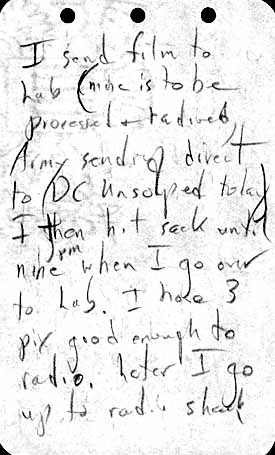 I send film to
Lab (mine is to be
processed + radioed,
Army sending direct
to DC unsouped today)
I then hit sack until
nine pm when I go over
to Lab. I have 3
pix good enough to
radio. Later I go
up to radio shack